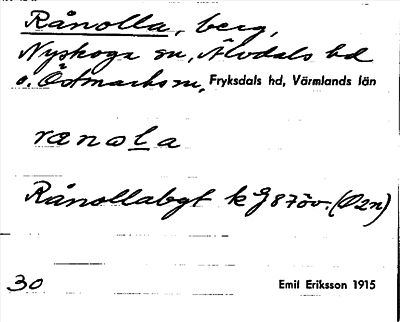 Rånolla, berg,
Nyskoga sn, Älvdals hd
o. Östmarks sn, Fryksdals hd, Värmlands län
ranola
Rånollabgt k J87öv. (Ø2n)
30 Emil Eriksson 1915